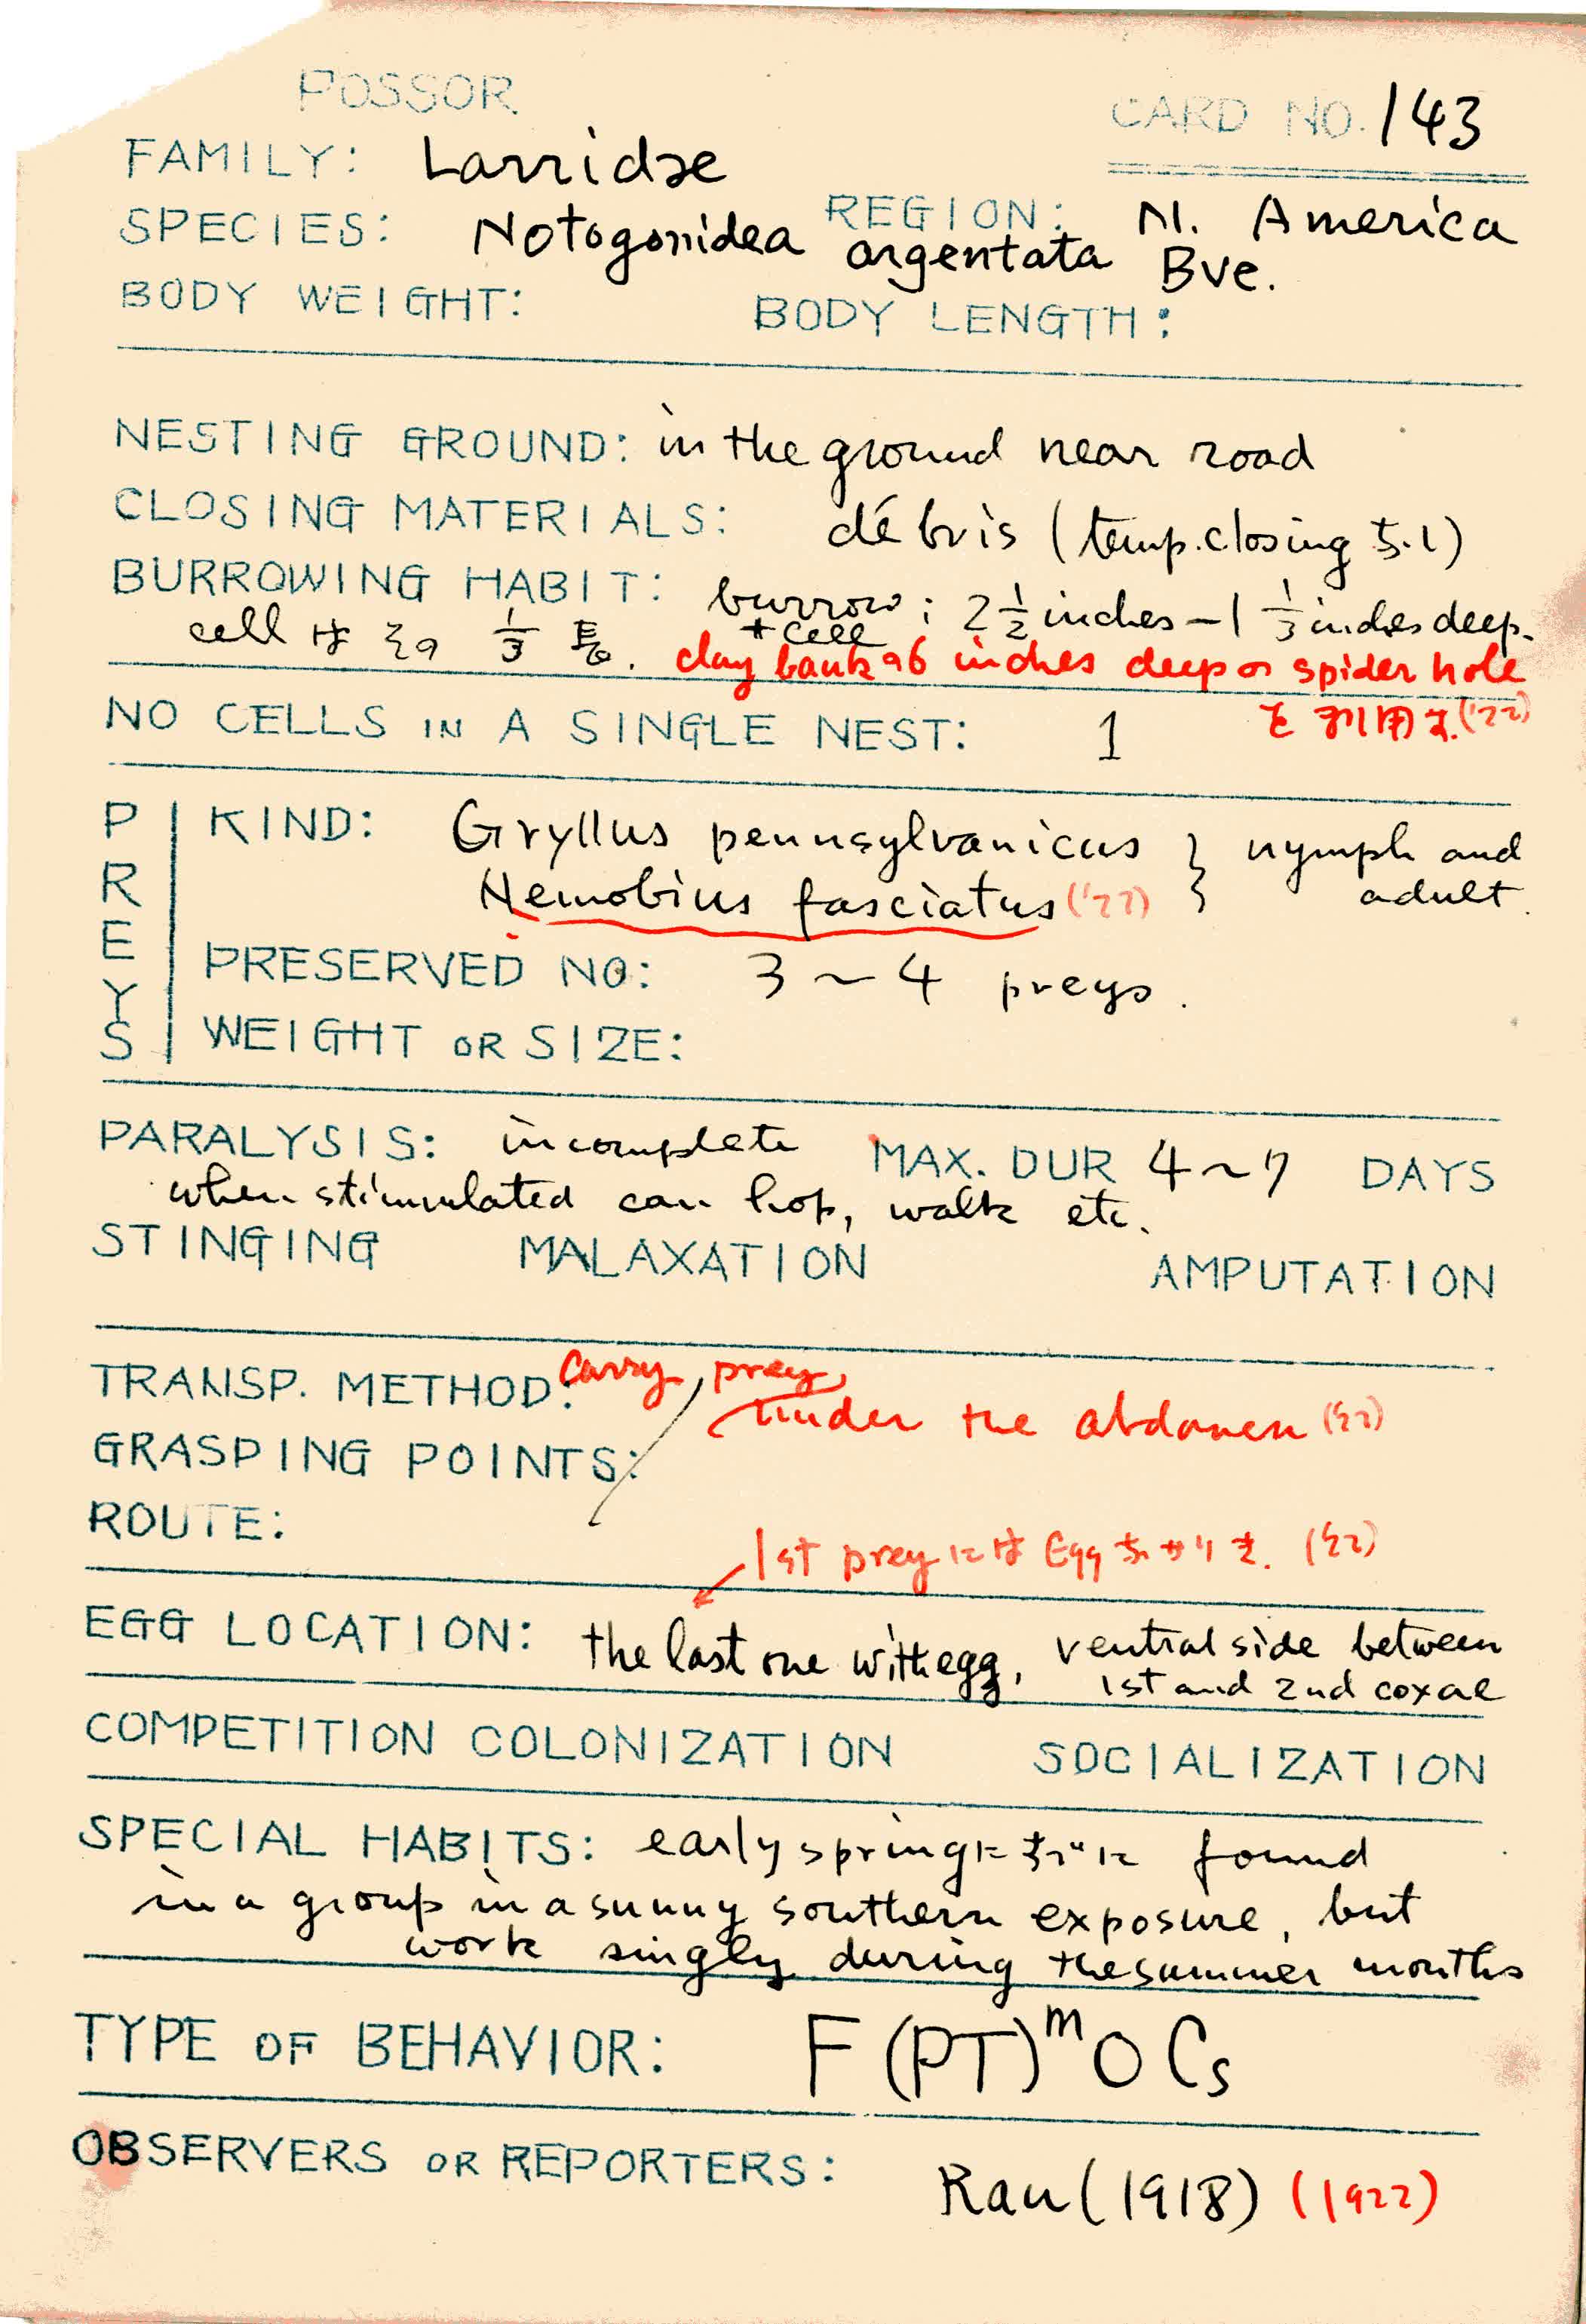 POSSOR
CARD NO. 143
FAMILY: Larridae
REGION: N. America
SPECIES: Notogonidea argentata Bve.
BODY WEIGHT: BODY LENGTH:
NESTING GROUND: in the ground near road
CLOSING MATERIALS: débris (temp. closing
BURROWING HABIT: burrow: 2 1/2 inches – 1 1/3 inches deep.
+ cell
cell は その 1/3
clay bank 6 inches deep の spider hole
を利用す. ('22)
NO CELLS IN A SINGLE NEST: 1
PREYS
KIND: Gryllus pennsylvanicus } nymph and
Nemobius fasciatus ('22) adult.
PRESERVED NO: 3 ~ 4 preys.
WEIGHT OR SIZE:
PARALYSIS: incomplete MAX. DUR 4~7 DAYS
when stimulated can hop, walk etc.
STINGING MALAXATION AMPUTATION
TRANSP. METHOD: Carry prey
under the abdomen ('22)
GRASPING POINTS:
ROUTE:
1st prey には Egg ('22)
EGG LOCATION: the last one with egg, ventral side between
1st and 2nd coxae
COMPETITION COLONIZATION SOCIALIZATION
SPECIAL HABITS: early spring found
in a group in a sunny southern exposure, but
work singly during the summer months
TYPE OF BEHAVIOR: F (PT)ᵐ O Cs
OBSERVERS OR REPORTERS: Rau (1918) (1922)